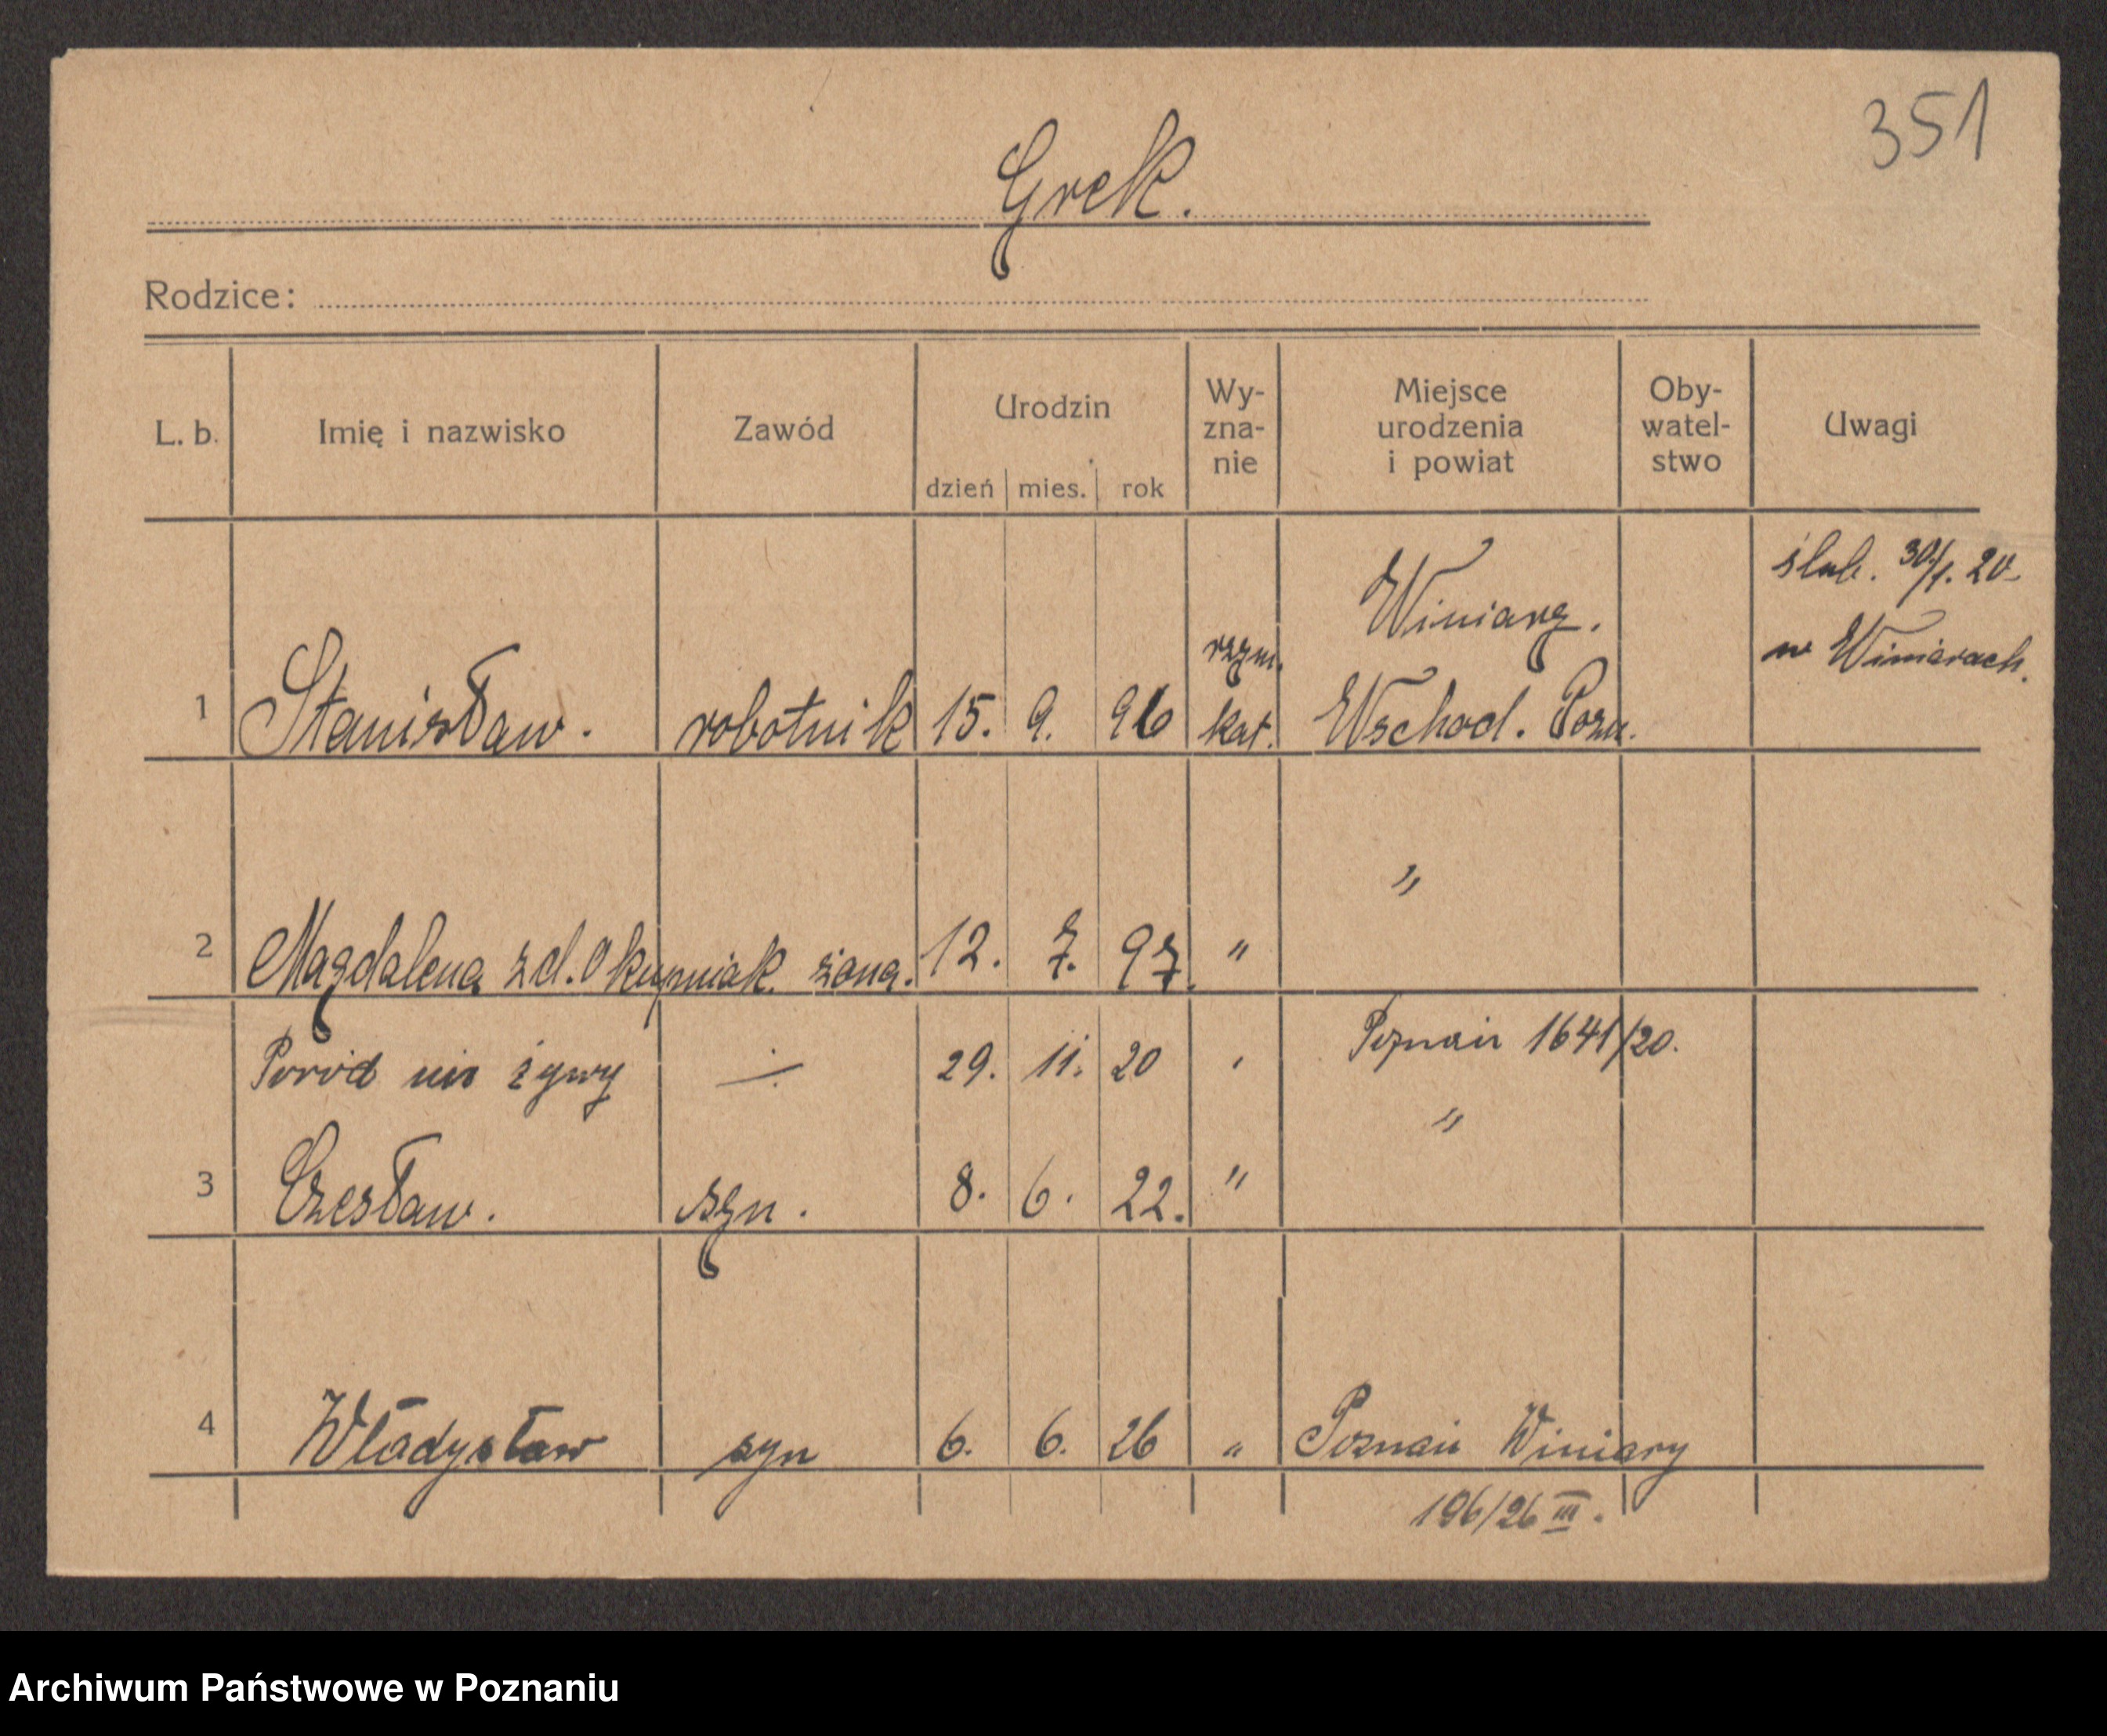 351
Grek.
Rodzice:
L. b. Imię i nazwisko Zawód Urodzin dzień mies. rok Wy-zna-nie Miejsce urodzenia i powiat Oby-watel-stwo Uwagi
ślub. 30/1. 20
w Winiarach.
Winiary.
rzym.
1 Stanisław. robotnik 15. 9. 96 kat. Wschod. Pozn.
"
2 Magdalena zd. Okupniak żona. 12. 7. 97. "
Poród nie żywy — 29. 11. 20 " Poznań 1641/20.
"
3 Czesław. syn. 8. 6. 22. "
4 Władysław syn 6. 6. 26 " Poznań Winiary
196/26 III.
Archiwum Państwowe w Poznaniu